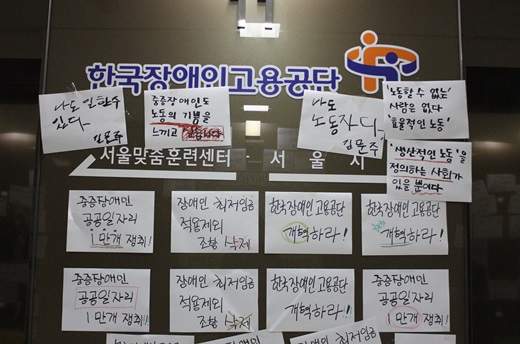 한국장애인고용공단
나도 일할수
있다.
김문주
중증장애인도
노동의 기쁨을
느끼고 싶습니다
나도
노동자다.
김문주
'노동할 수 없는'
사람은 없다
'효율적인 노동'
'생산적인 노동'을
정의하는 사회가
있을 뿐이다.
서울맞춤훈련센터
서울지
중증장애인
공공일자리
1만개 쟁취!
장애인 최저임금
적용제외
조항 삭제
한국장애인고용공단
개혁하라!
한국장애인고용공단
개혁하라!
중증장애인
공공일자리
1만개 쟁취!
장애인 최저임금
적용제외
조항 삭제
한국장애인고용공단
개혁하라!
중증장애인
공공일자리
1만개 쟁취!
장애인 최저임금